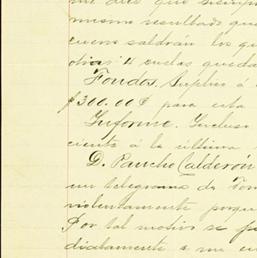 me dice que siempre
mismo resultado que
cueros saldrán los que
otras 12 suelas queda
Fondos. Suplico á
$300.00¢ para esta
Informe. Incluso
ciento á la última
D. Pancho Calderón
un telegrama de Fon
violentamente porque
Por tal motivo se fu
diatamente a me en